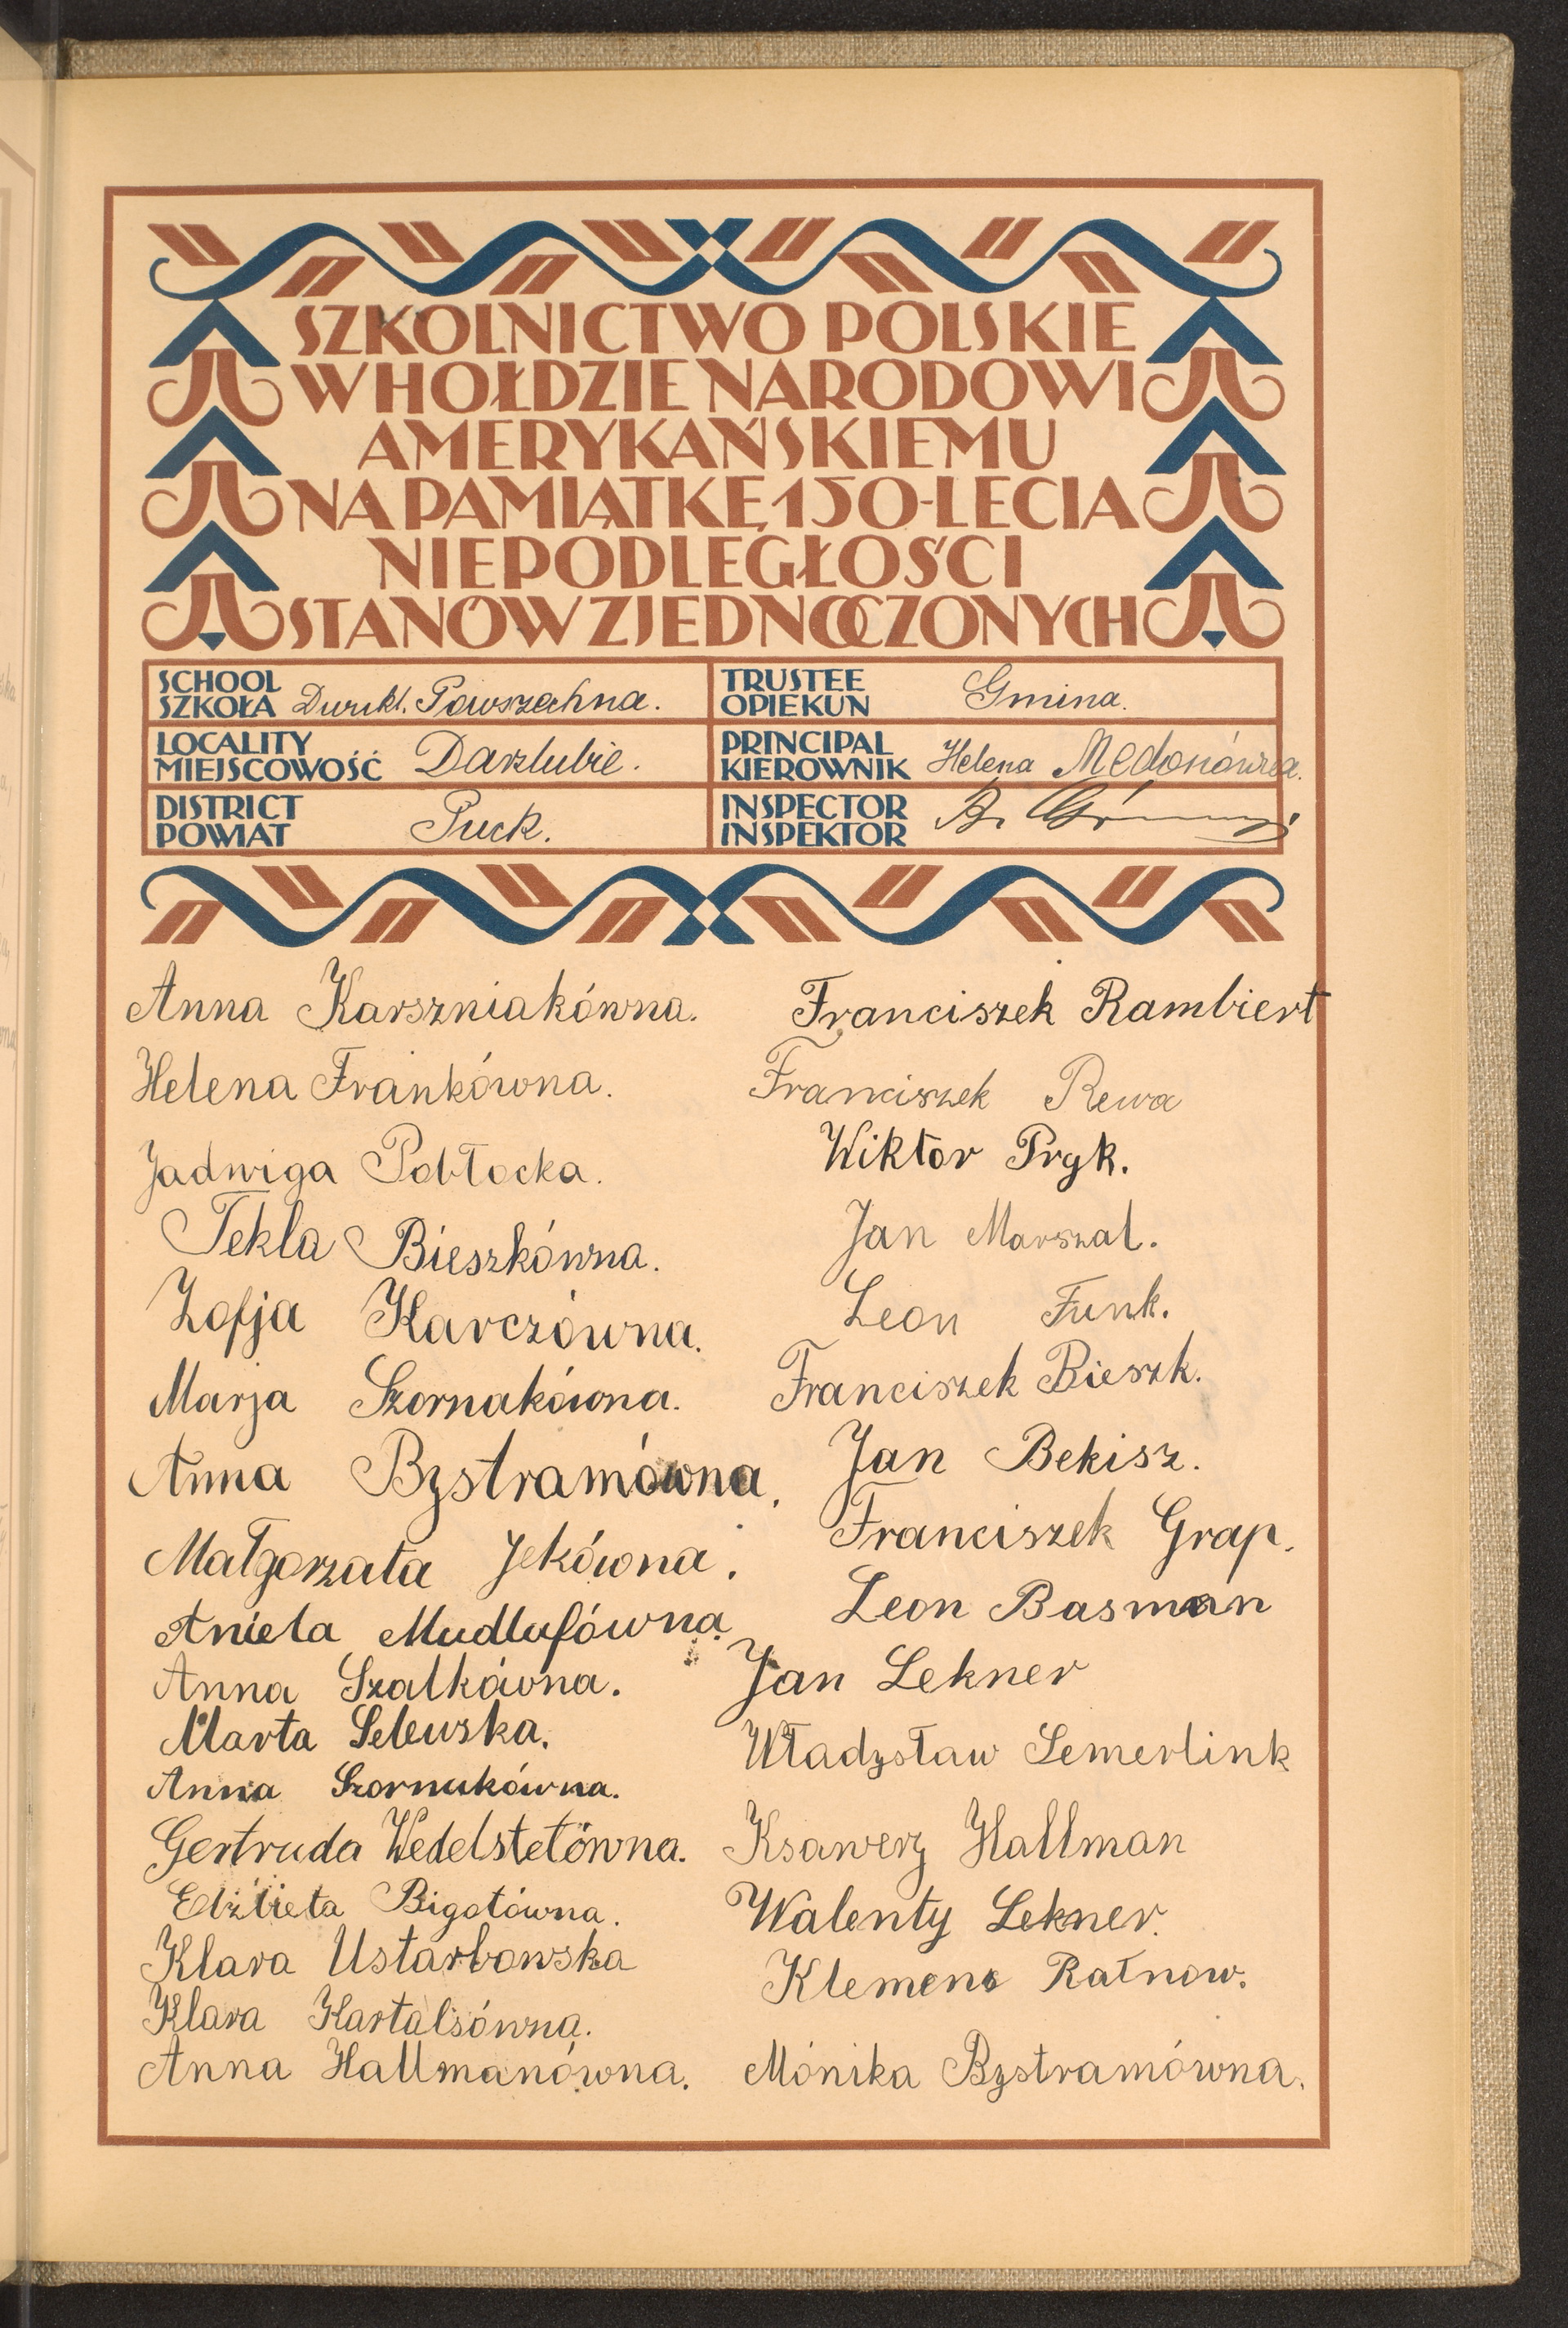 SZKOLNICTWO POLSKIE
W HOŁDZIE NARODOWI
AMERYKAŃSKIEMU
NA PAMIĄTKĘ 150-LECIA
NIEPODLEGŁOŚCI
STANÓW ZJEDNOCZONYCH
SCHOOL
SZKOŁA Dwukl. Powszechna.
TRUSTEE
OPIEKUN Gmina.
LOCALITY
MIEJSCOWOŚĆ Darzlubie.
PRINCIPAL
KIEROWNIK Helena Medonówna.
DISTRICT
POWIAT Puck.
INSPECTOR
INSPEKTOR
Anna Karszniakówna.
Helena Frankówna.
Jadwiga Pobłocka.
Tekla Bieszkówna.
Zofja Karczówna.
Marja Szornakówna.
Anna Bystramówna.
Małgorzata Jekówna.
Aniela Mudlafówna
Anna Szalkówna.
Marta Selewska.
Anna Szornakówna.
Gertruda Wedelstetówna.
Elżbieta Bigotówna.
Klara Ustarbowska
Klara Kartalsówna.
Anna Hallmanówna.
Franciszek Rambiert
Franciszek Rewa
Wiktor Pryk.
Jan Marszal.
Leon Funk.
Franciszek Bieszk.
Jan Bekisz.
Franciszek Grap.
Leon Basman
Jan Lekner
Władysław Semerlink
Ksawery Hallman
Walenty Lekner.
Klemens Ratnow.
Mónika Bystramówna.